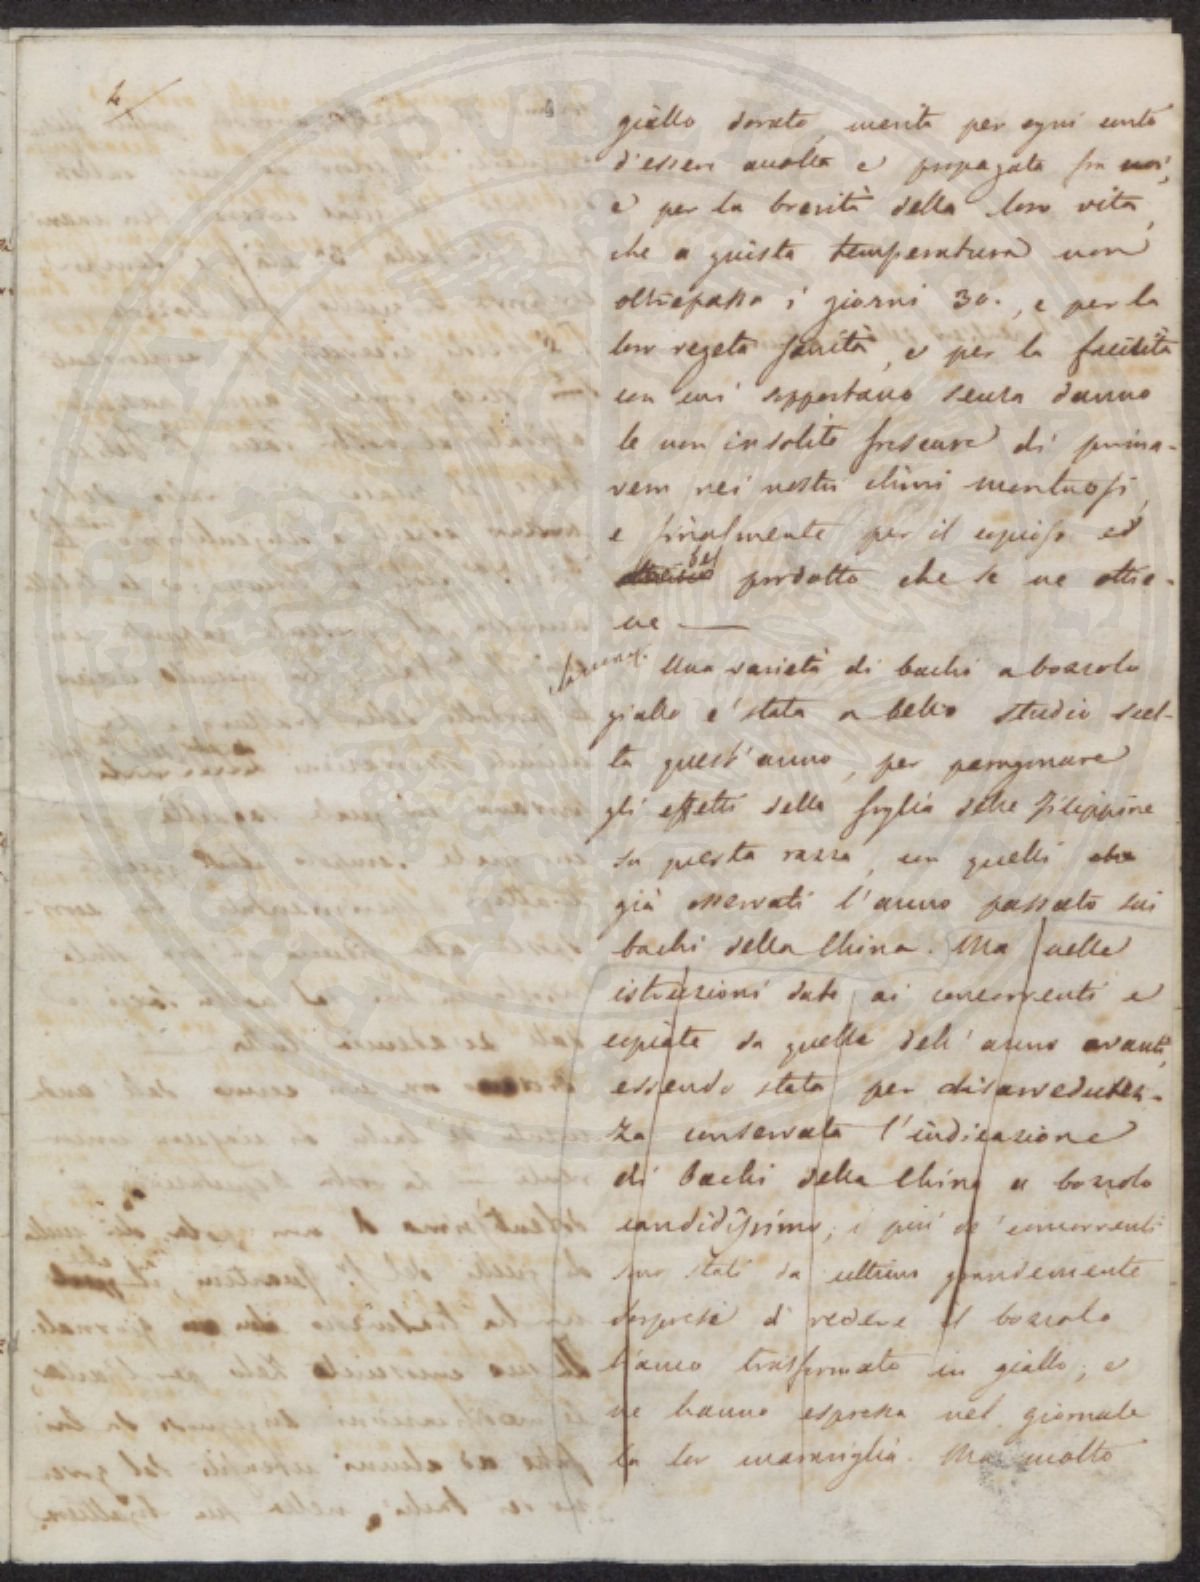 4
giallo dorato, merita per ogni conto
d'essere accolta e propagata fra noi,
e per la brevità della loro vita,
che a giusta temperatura non
oltrepassa i giorni 30., e per la
loro vegeta sanità, e per la facilità
con cui sopportano senza danno
le non insolite frescure di prima-
vera nei nostri climi montuosi,
e finalmente per il copioso ed
bel prodotto che se ne ottie-
ne —
Una varietà di bachi a bozzolo
giallo e' stata a bello studio scel-
ta quest'anno, per paragonare
gli effetti della foglia delle Filippine
su questa razza, con quelli
già osservati l'anno passato sui
bachi della China. Ma nelle
istruzioni date ai concorrenti e
copiate da quelle dell'anno avanti,
essendo stata per disavveduten-
za conservata l'indicazione
di bachi della China a bozzolo
candidissimo; i più de' concorrenti
sono stati da ultimo grandemente
sorpresi di vedere il bozzolo
bianco trasformato in giallo; e
ne hanno espressa nel giornale
la lor maraviglia. Ma molto